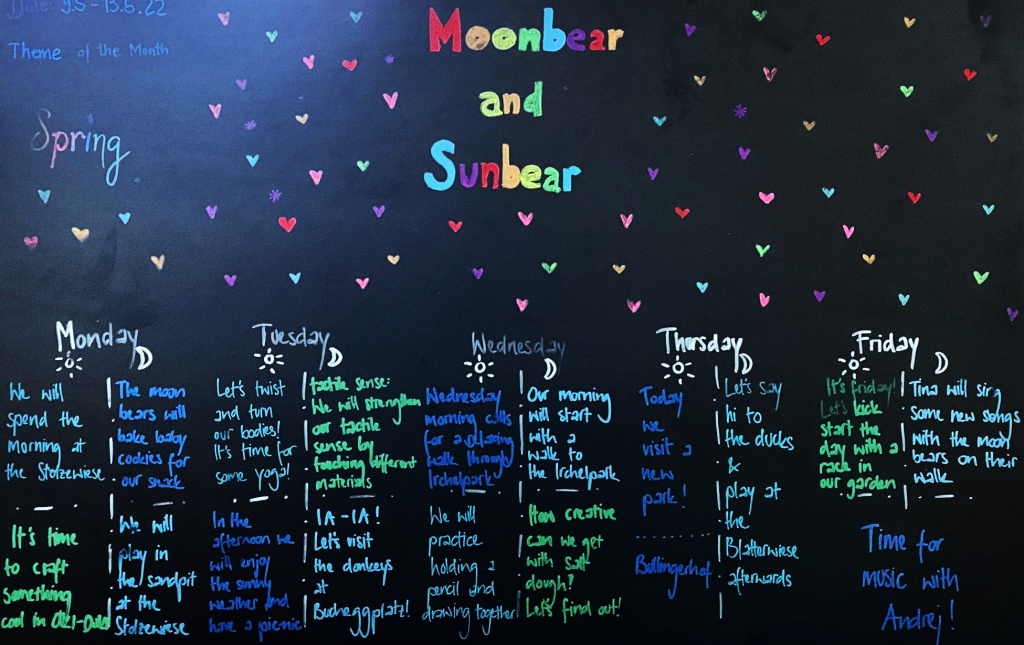 Date: 9.5 - 13.5.22
Theme of the Month:
Spring
Moonbear
and
Sunbear
Monday
We will
spend the
morning at
the Stolzewiese
The moon
bears will
bake baby
cookies for
our snack
It's time
to craft
something
cool in
We will
play in
the sandpit
at the
Stolzewiese
Tuesday
Let's twist
and turn
our bodies!
It's time for
some yoga!
tactile sense:
We will strengthen
our tactile
sense by
touching different
materials
In the
afternoon we
will enjoy
the sunny
weather and
have a picnic
IA-IA!
Let's visit
the donkeys
at
Bucheggplatz!
Wednesday
Wednesday
morning calls
for a relaxing
walk through
Irchelpark
Our morning
will start
with a
walk to
the Irchelpark
We will
practice
holding a
pencil and
drawing together
How creative
can we get
with salt
dough?
Let's find out!
Thursday
Today
we
visit a
new
park!
Bullingerhof
Let's say
hi to
the ducks
&
play at
the
Blatterwiese
afterwards
Friday
It's friday!
Let's kick
start the
day with a
race in
our garden
Tina will sing
some new songs
with the moon
bears on their
walk
Time for
music with
Andrej!